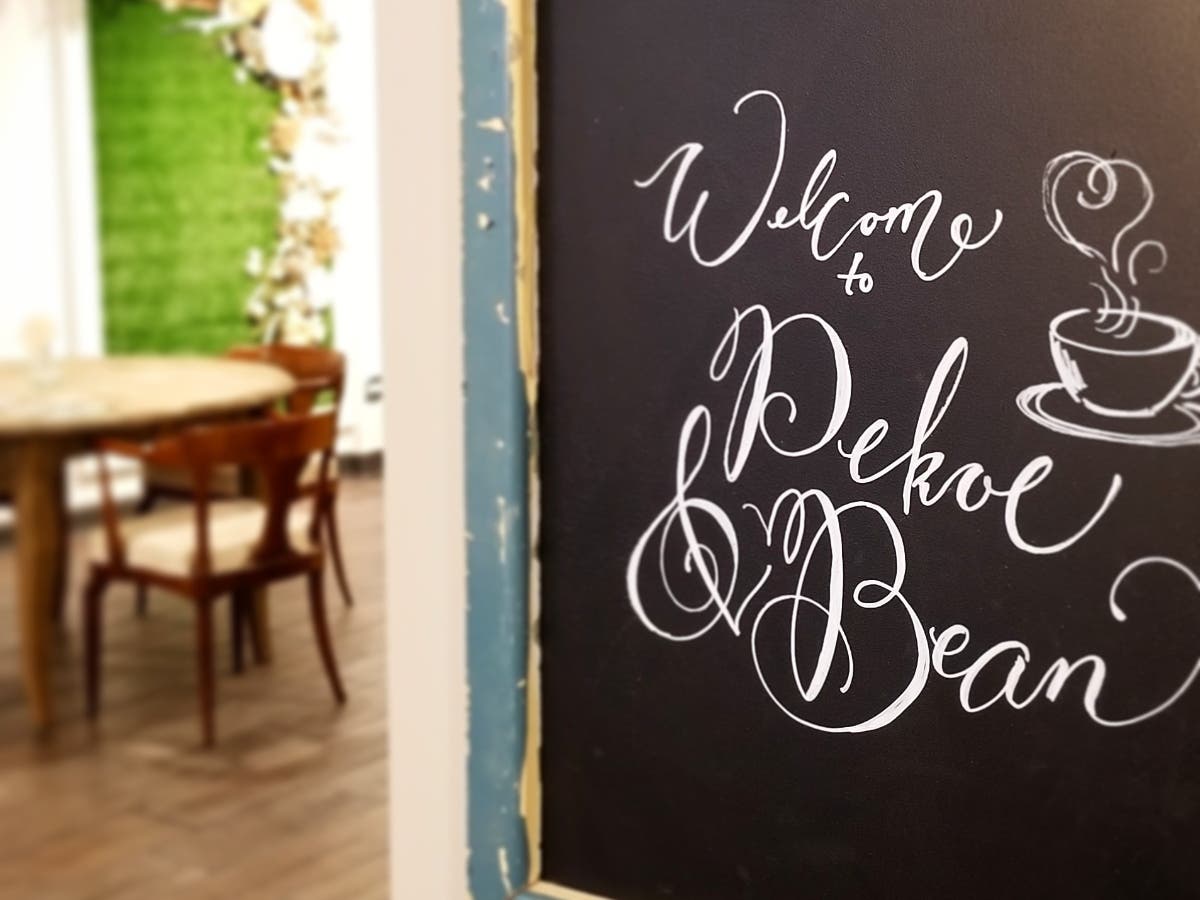 Welcome
to
Pekoe
& Bean